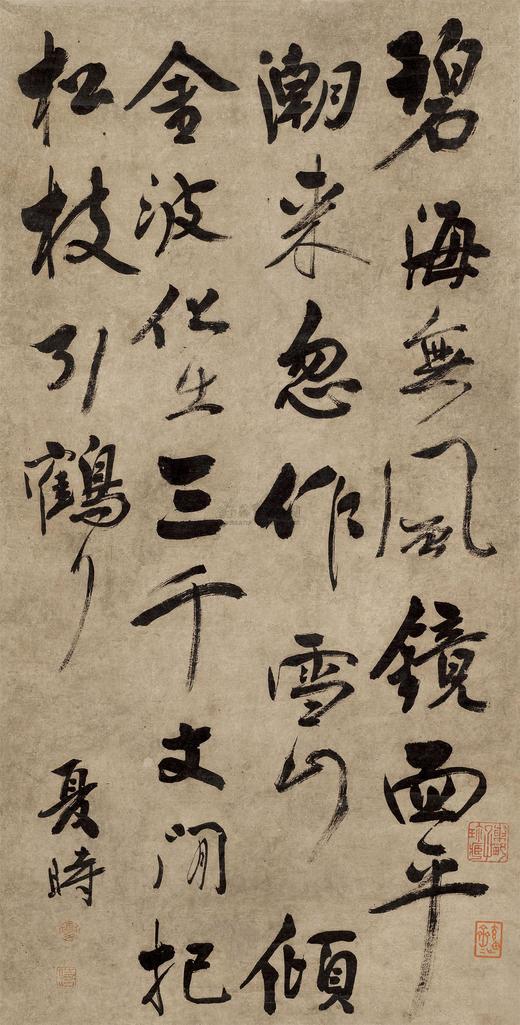 碧海無風鏡面平
潮来忽作雪山傾
金波化出三千丈閒把
松枝引鶴行
夏時